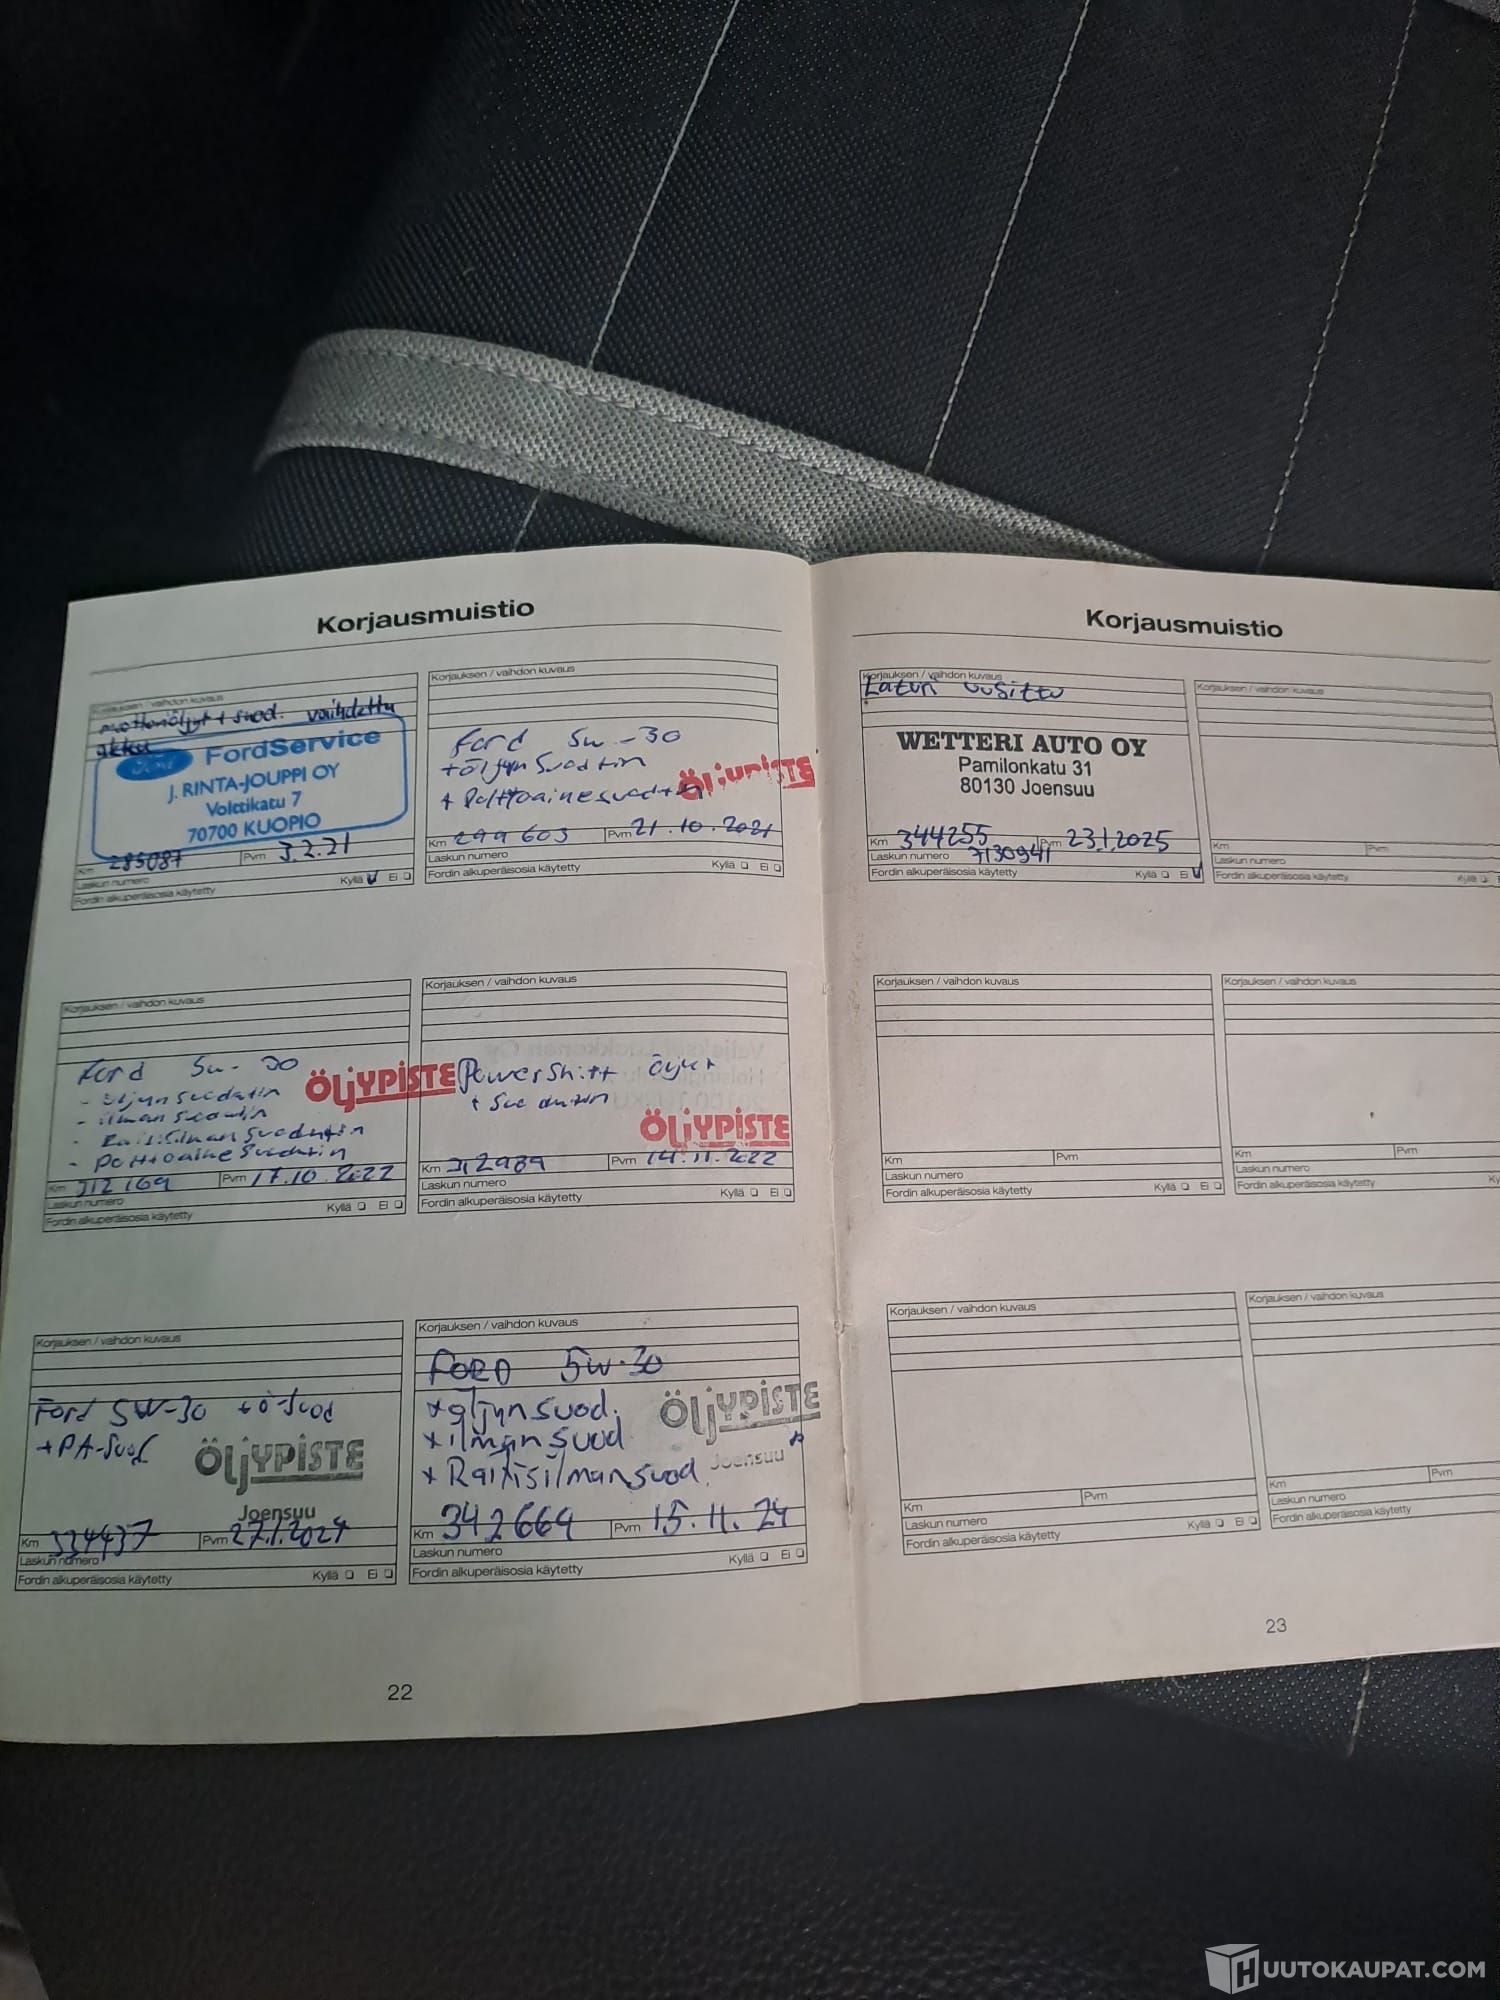 Korjausmuistio
Korjauksen / vaihdon kuvaus
moottoriöljyt + suod. vaihdettu
akku
Ford
FordService
J. RINTA-JOUPPI OY
Volttikatu 7
70700 KUOPIO
Km 285087 Pvm 3.2.21
Laskun numero
Fordin alkuperäisosia käytetty Kyllä Ei
Korjauksen / vaihdon kuvaus
Ford 5w-30
+ öljynsuodatin
+ Polttoainesuodatin
ÖLJYPISTE
Km 299603 Pvm 21.10.2021
Laskun numero
Fordin alkuperäisosia käytetty Kyllä Ei
Korjauksen / vaihdon kuvaus
Ford 5w-30
- öljynsuodatin
- ilmansuodatin
- Raitisilmansuodatin
- Polttoainesuodatin
ÖLJYPISTE
Km 312169 Pvm 17.10.2022
Laskun numero
Fordin alkuperäisosia käytetty Kyllä Ei
Korjauksen / vaihdon kuvaus
Powershift öljyt
+ suodatin
ÖLJYPISTE
Km 312989 Pvm 14.11.2022
Laskun numero
Fordin alkuperäisosia käytetty Kyllä Ei
Korjauksen / vaihdon kuvaus
Ford 5W-30 +ö-suod
+PA-suod
ÖLJYPISTE
Joensuu
Km 334437 Pvm 27.1.2024
Laskun numero
Fordin alkuperäisosia käytetty Kyllä Ei
Korjauksen / vaihdon kuvaus
FORD 5w-30
+öljynsuod.
+ilmansuod
+Raitisilmansuod
ÖLJYPISTE
Joensuu
Km 342669 Pvm 15.11.24
Laskun numero
Fordin alkuperäisosia käytetty Kyllä Ei
22
Korjausmuistio
Korjauksen / vaihdon kuvaus
Laturi uusittu
WETTERI AUTO OY
Pamilonkatu 31
80130 Joensuu
Km 344255 Pvm 23.1.2025
Laskun numero 7130941
Fordin alkuperäisosia käytetty Kyllä Ei
Korjauksen / vaihdon kuvaus
Km Pvm
Laskun numero
Fordin alkuperäisosia käytetty Kyllä
Korjauksen / vaihdon kuvaus
Km Pvm
Laskun numero
Fordin alkuperäisosia käytetty Kyllä Ei
Korjauksen / vaihdon kuvaus
Km Pvm
Laskun numero
Fordin alkuperäisosia käytetty
Korjauksen / vaihdon kuvaus
Km Pvm
Laskun numero
Fordin alkuperäisosia käytetty Kyllä Ei
Korjauksen / vaihdon kuvaus
Km Pvm
Laskun numero
Fordin alkuperäisosia käytetty
23
HUUTOKAUPAT.COM